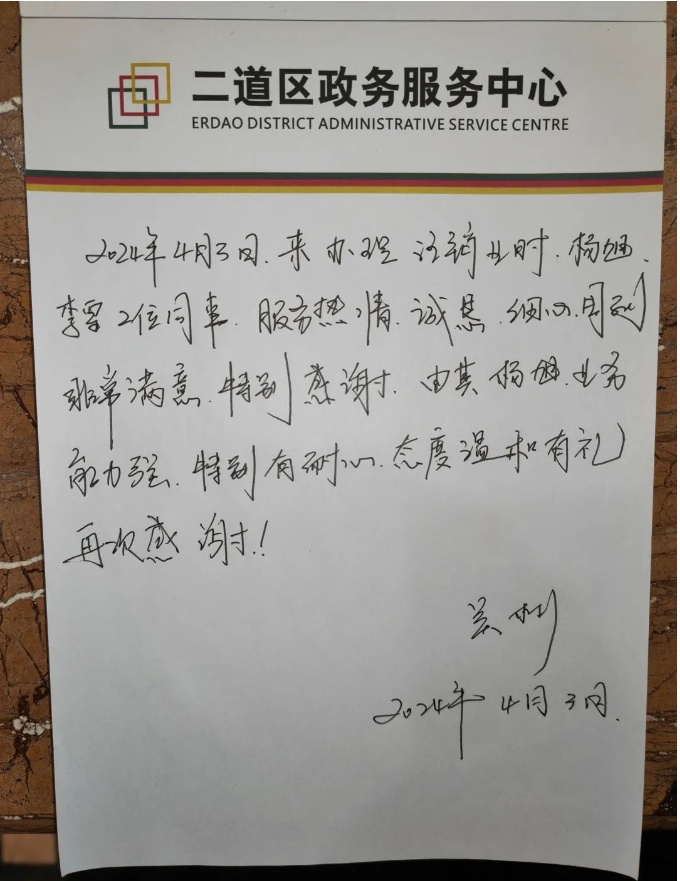 二道区政务服务中心
ERDAO DISTRICT ADMINISTRATIVE SERVICE CENTRE
2024年4月3日.来办理注销业时.杨旭.
李雪2位同事.服务热情.诚恳.细心.周到
非常满意.特别感谢.由其杨旭.业务
能力强.特别有耐心.态度温和有礼
再次感谢!
彬
2024年4月3日.